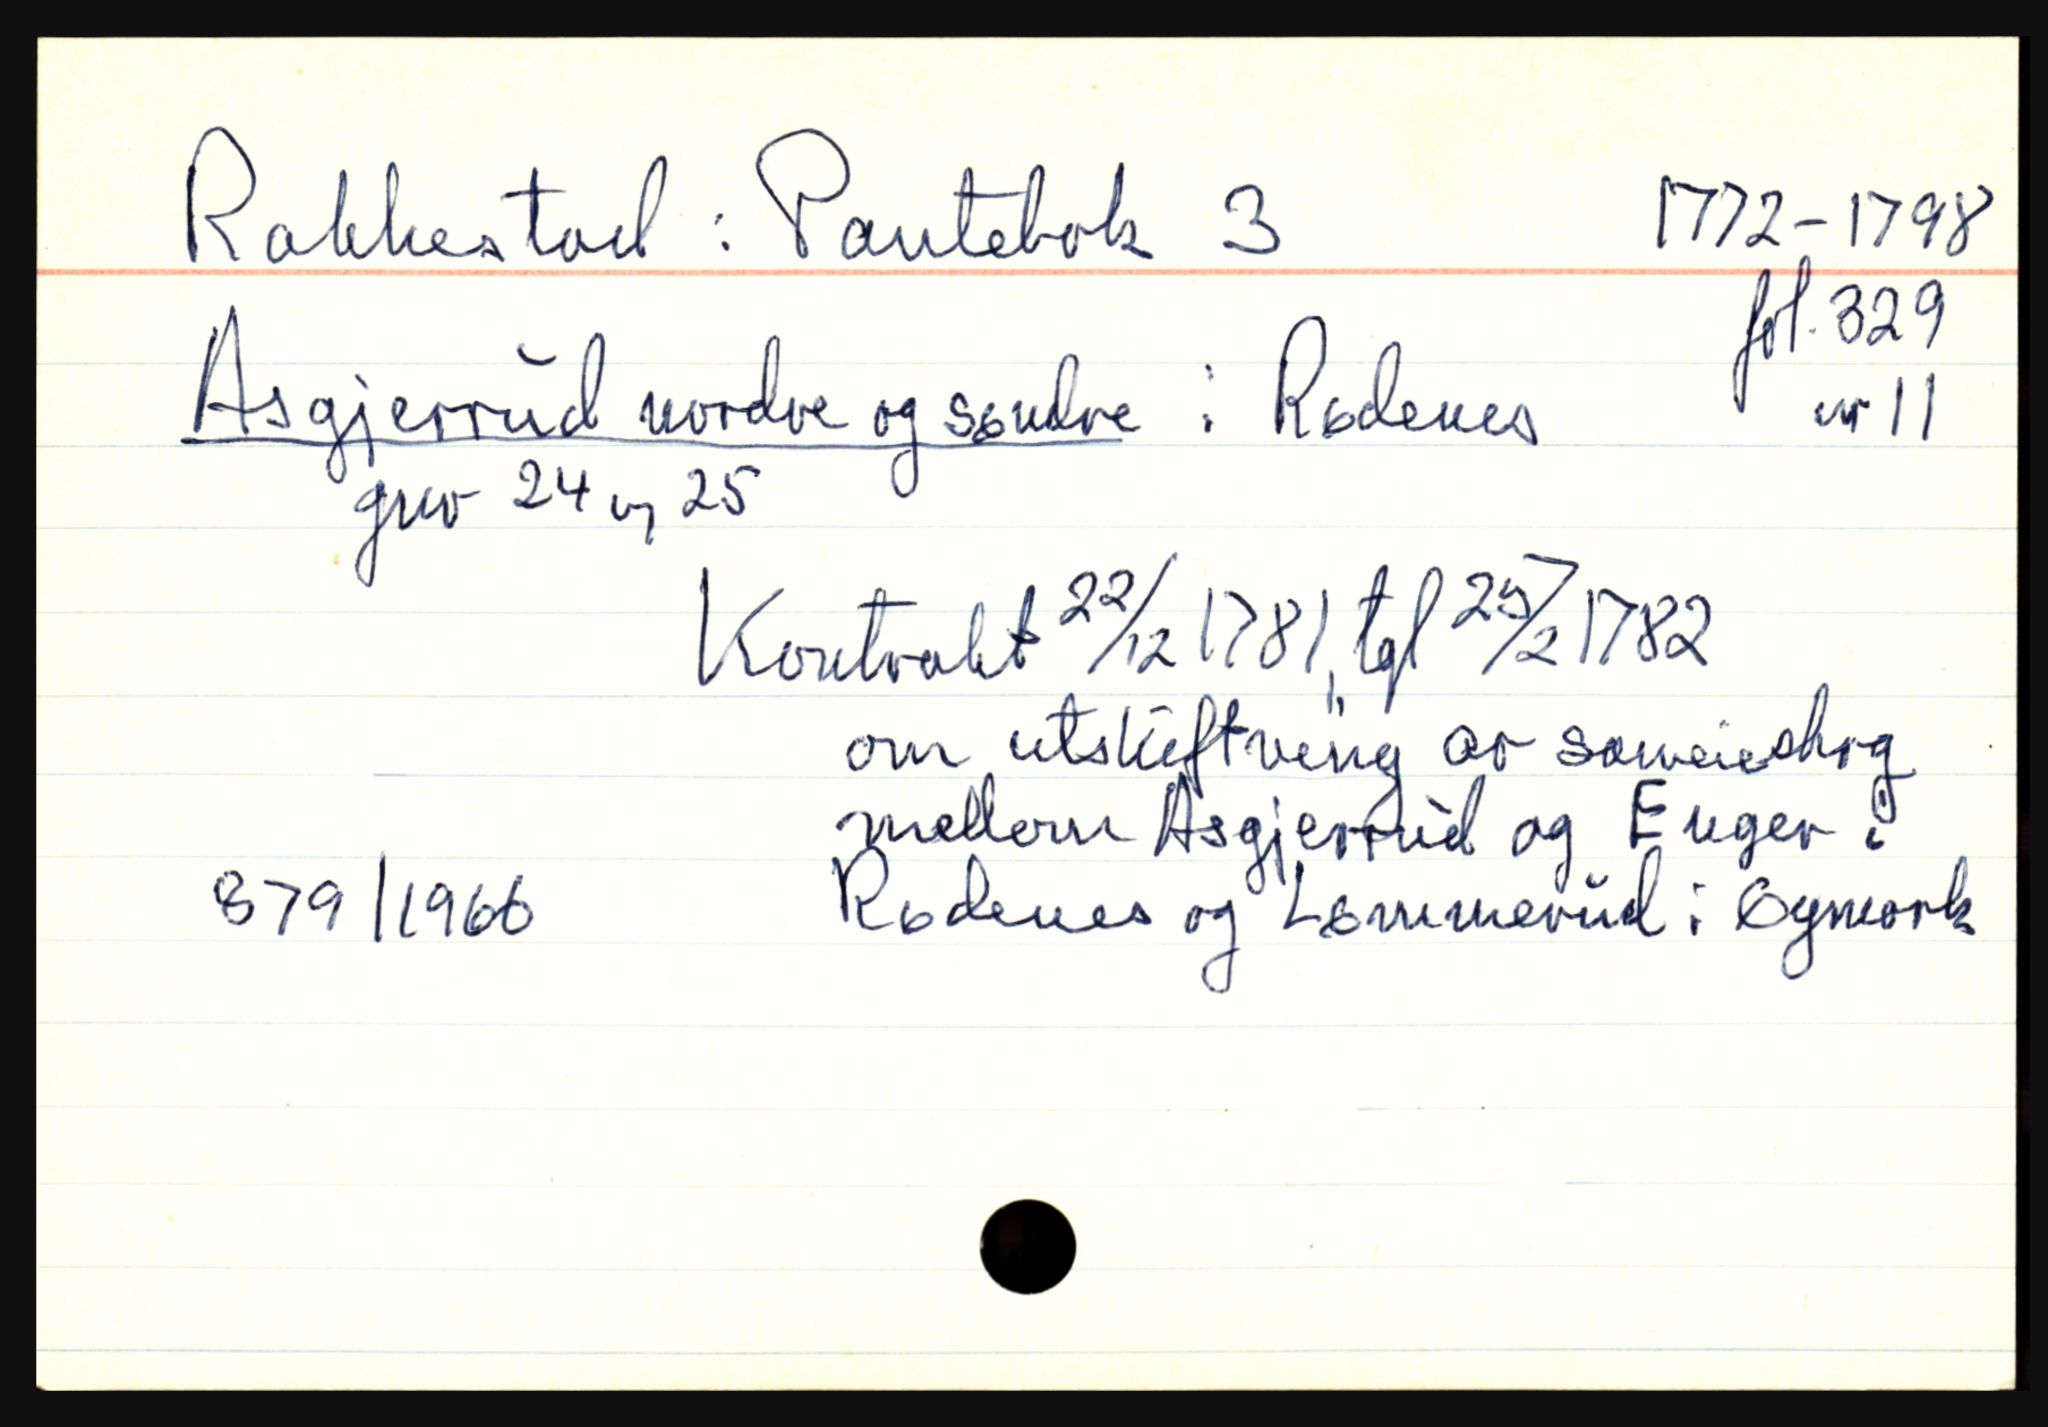 Rakkestad : Pantebok 3 1772-1798
fol. 329
Asgjerrud nordre og søndre i Rødenes nr 11
gnr 24 og 25
Kontrakt 22/12 1781, tgl 25/2 1782
om utskiftning av sameieskog
mellom Asgjerrud og Enger i
879/1966 Rødenes og Lømmerud i Øymark